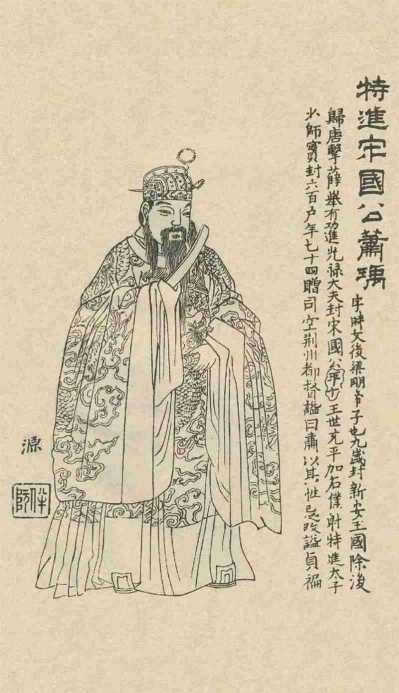 特進宋國公蕭瑀
字時文後梁明帝子也九歲封新安王國除後
歸唐擊薛舉有功進光祿大夫封宋國公王世充平加右僕射特進太子
少師實封六百户年七十四贈司空荊州都督謚曰肅以其性忌改謚貞褊
源
伴阮